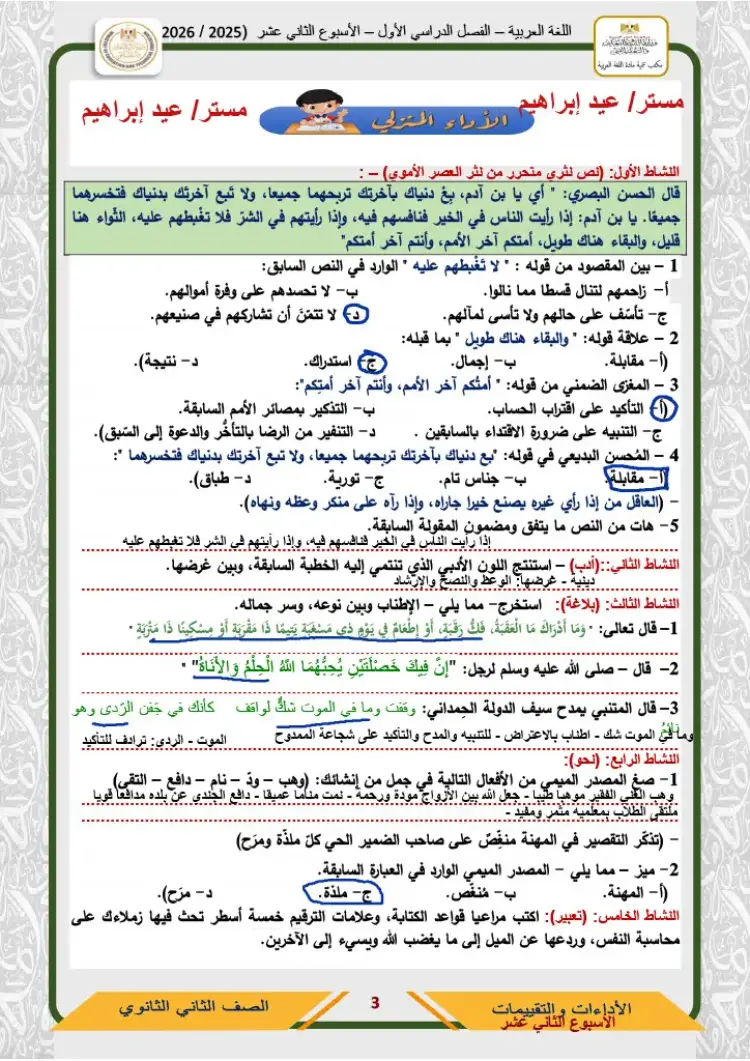 اللغة العربية – الفصل الدراسي الأول – الأسبوع الثاني عشر (2025 / 2026
مكتب تنمية مادة اللغة العربية
مستر/ عيد إبراهيم
الأداء المنزلي
مستر/ عيد إبراهيم
النشاط الأول: (نص نثري متحرر من نثر العصر الأموي) – :
قال الحسن البصري: " أي يا بن آدم، بِعْ دنياك بآخرتك تربحهما جميعا، ولا تَبع آخرتَك بدنياك فتخسرهما
جميعًا. يا بن آدم: إذا رأيت الناس في الخير فنافسهم فيه، وإذا رأيتهم في الشرّ فلا تغْبطهم عليه، الثَّواء هنا
قليل، والبقاء هناك طويل، أمتكم آخر الأمم، وأنتم آخر أمتكم"
1 – بين المقصود من قوله : " لا تَغْبطهم عليه " الوارد في النص السابق:
أ- زاحمهم لتنال قسطا مما نالوا. ب- لا تحسدهم على وفرة أموالهم.
ج- تأسّف على حالهم ولا تأسى لمآلهم. د- لا تتمّنَ أن تشاركهم في صنيعهم.
2 – علاقة قوله: " والبقاء هناك طويل " بما قبله:
(أ- مقابلة. ب- إجمال. ج- استدراك. د- نتيجة).
3 – المغزى الضمني من قوله: " أمتُكم آخر الأمم، وأنتم آخر أمتِكم":
(أ- التأكيد على اقتراب الحساب. ب- التذكير بمصائر الأمم السابقة.
ج- التنبيه على ضرورة الاقتداء بالسابقين . د- التنفير من الرضا بالتأخُّر والدعوة إلى السَبق).
4 – المُحسن البديعي في قوله: "بع دنياك بآخرتك تربحهما جميعا، ولا تبع آخرتك بدنياك فتخسرهما ":
أ- مقابلة. ب- جناس تام. ج- تورية. د- طباق).
- (العاقل من إذا رأي غيره يصنع خيرا جاراه، وإذا رآه على منكر وعظه ونهاه).
5- هات من النص ما يتفق ومضمون المقولة السابقة.
إذا رأيت الناس في الخير فنافسهم فيه، وإذا رأيتهم في الشر فلا تغبطهم عليه
النشاط الثاني::(أدب) – استنتج اللون الأدبي الذي تنتمي إليه الخطبة السابقة، وبين غرضها.
دينية - غرضها: الوعظ والنصح والإرشاد
النشاط الثالث: (بلاغة): استخرج- مما يلي – الإطناب وبين نوعه، وسر جماله.
1- قال تعالى: "وَمَا أَدْرَاكَ مَا الْعَقَبَةُ، فَكُّ رَقَبَةٍ، أَوْ إِطْعَامٌ فِي يَوْمٍ ذِي مَسْغَبَةٍ يَتِيمًا ذَا مَقْرَبَةٍ أَوْ مِسْكِينًا ذَا مَتْرَبَةٍ "
2- قال – صلى الله عليه وسلم لرجل: "إِنَّ فِيكَ خَصْلَتَيْنِ يُحِبُّهُمَا اللَّهُ الْحِلْمُ وَالأَنَاةُ" "
3- قال المتنبي يمدح سيف الدولة الحِمداني: وقفتَ وما في الموت شكٌّ لواقف كأنك في جَفن الرّدى وهو
نائمُ
وما في الموت شك - اطناب بالاعتراض - للتنبيه والمدح والتأكيد على شجاعة الممدوح
الموت - الردي: ترادف للتأكيد
النشاط الرابع: (نحو):
1- صغ المصدر الميمي من الأفعال التالية في جمل من إنشائك: (وهب – ودّ – نام – دافع – التقى)
وهب الغني الفقير موهبا طيبا - جعل الله بين الأزواج مودة ورحمة - نمت مناما عميقا - دافع الجندي عن بلده مدافعا قويا
ملتقى الطلاب بمعلميه مثمر ومفيد -
- (تذكّر التقصير في المهنة منغِّصٌ على صاحب الضمير الحي كلّ ملذّة ومرَح)
2- ميز – مما يلي – المصدر الميمي الوارد في العبارة السابقة.
(أ- المهنة. ب- مُنغّص. ج- ملذة. د- مرَح).
النشاط الخامس: (تعبير): اكتب مراعيا قواعد الكتابة، وعلامات الترقيم خمسة أسطر تحث فيها زملاءك على
محاسبة النفس، وردعها عن الميل إلى ما يغضب الله ويسيء إلى الآخرين.
الأداءات والتقييمات
الأسبوع الثاني عشر
3
الصف الثاني الثانوي